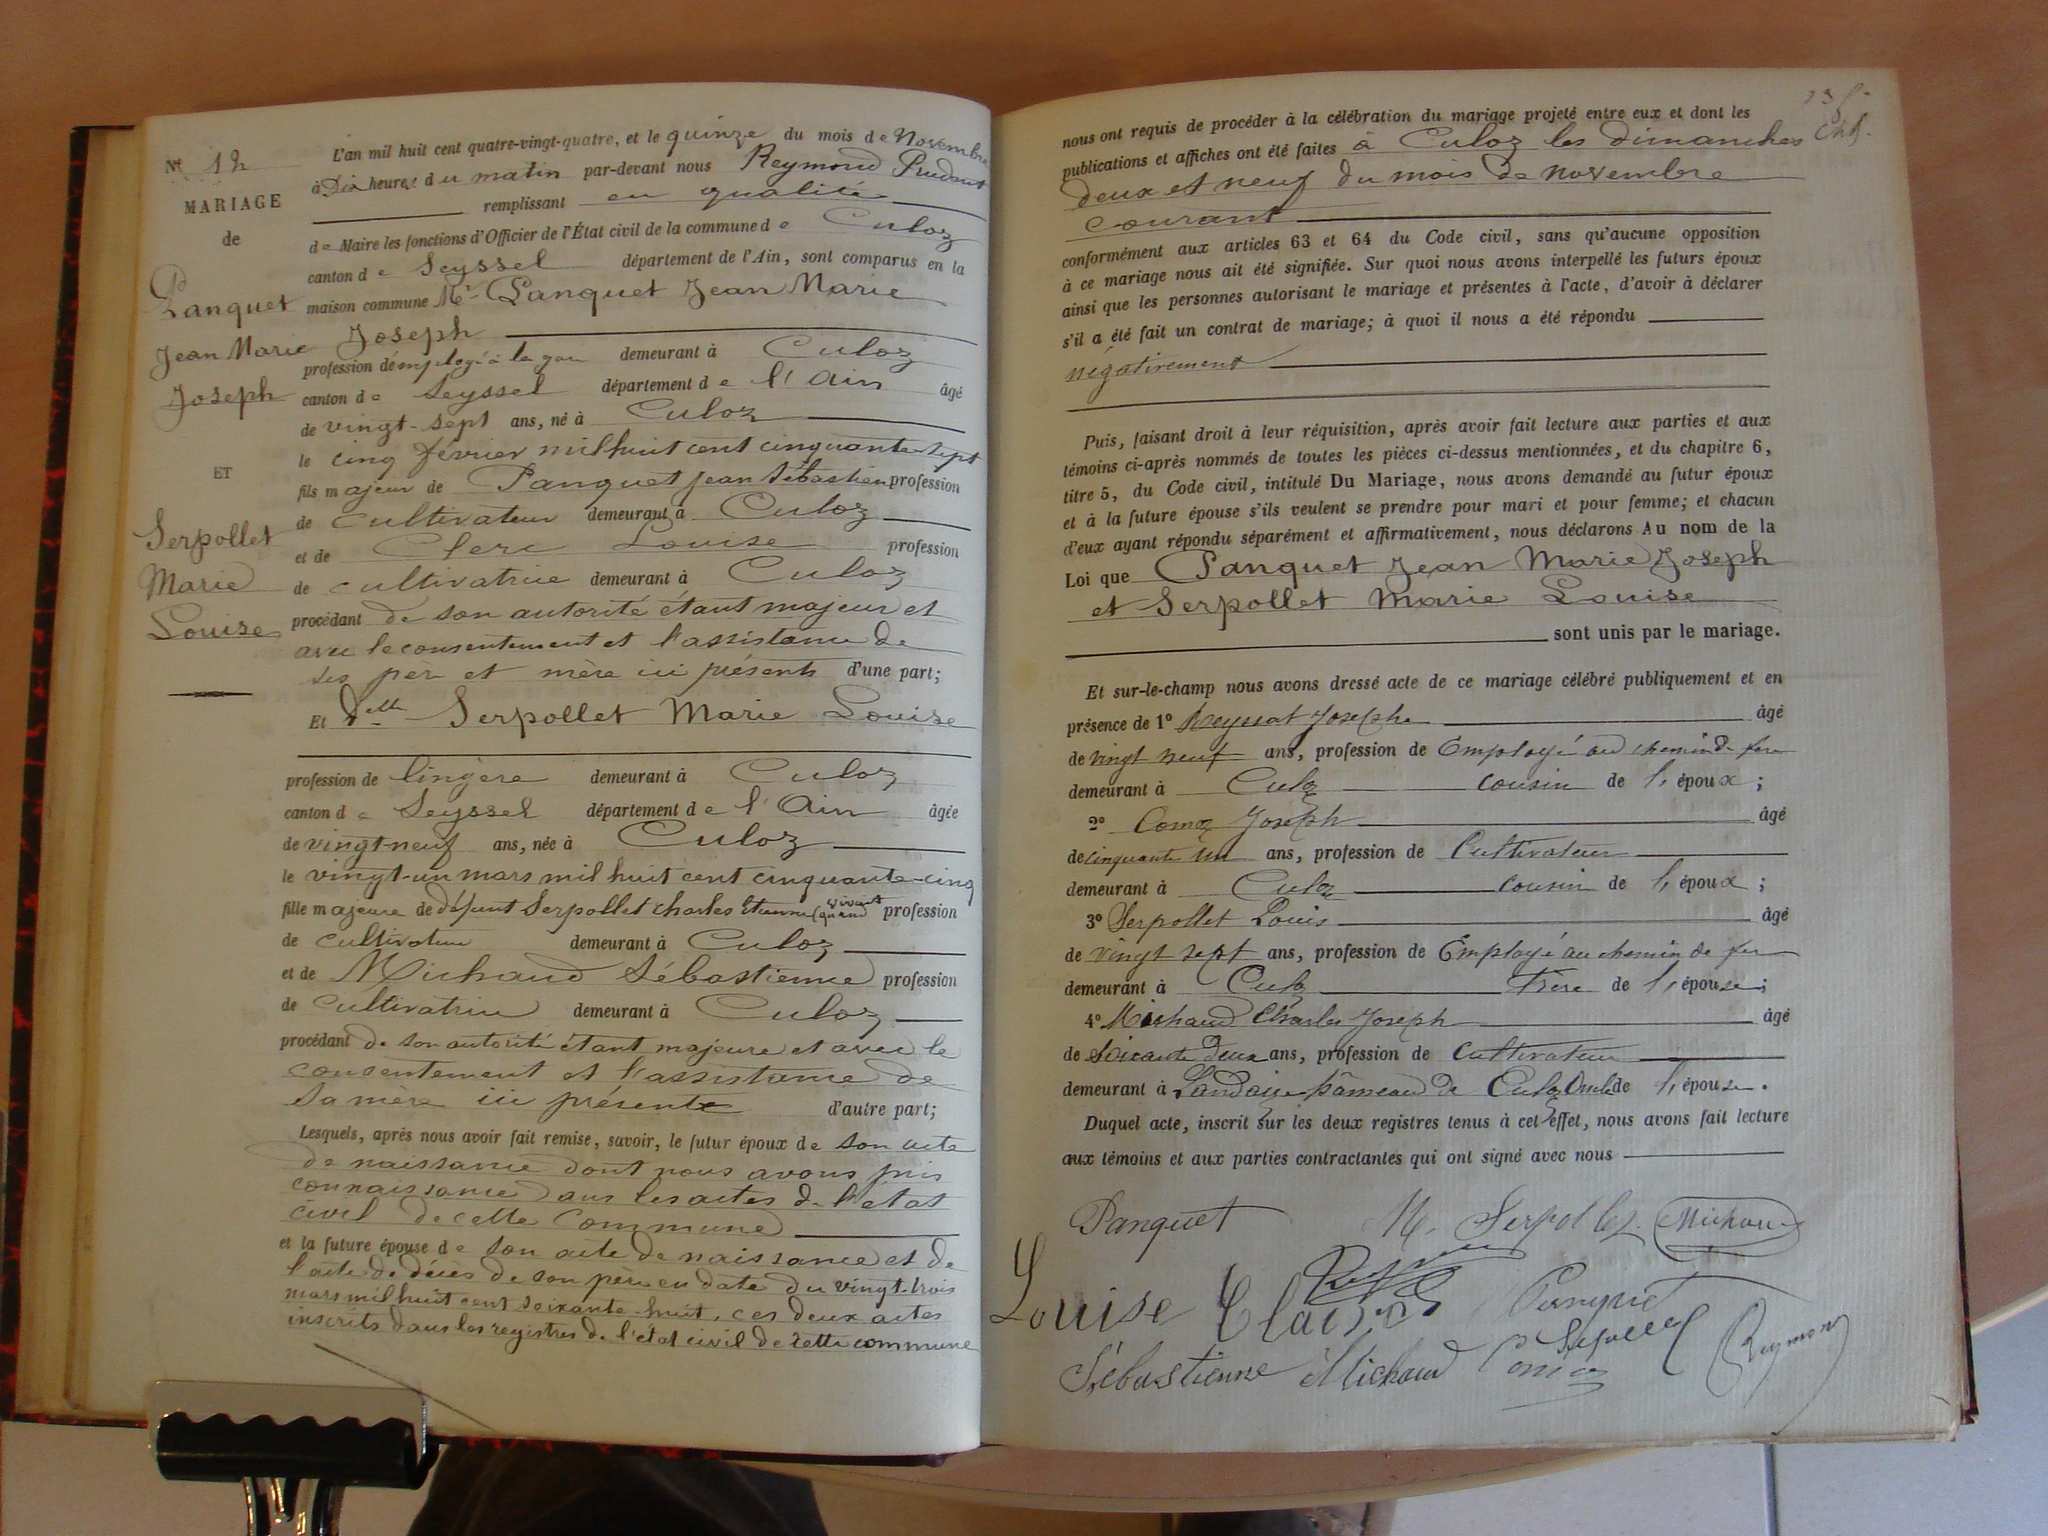 Nº 12
MARIAGE
de
Panquet
Jean Marie
Joseph
ET
Serpollet
Marie
Louise
L'an mil huit cent quatre-vingt-quatre, et le quinze du mois de Novembre
à Dix heures du matin par-devant nous Reymond Prudent
remplissant en qualité
de Maire les fonctions d'Officier de l'État civil de la commune de Culoz
canton de Seyssel département de l'Ain, sont comparus en la
maison commune Mr Panquet Jean Marie
Joseph
profession d'employé à la gare demeurant à Culoz
canton de Seyssel département de l'Ain âgé
de vingt-sept ans, né à Culoz
le cinq février mil huit cent cinquante-sept
fils majeur de Panquet Jean Sébastien profession
de cultivateur demeurant à Culoz
et de Clerc Louise profession
de cultivatrice demeurant à Culoz
procédant de son autorité étant majeur et
avec le consentement et l'assistance de
ses père et mère ici présents d'une part;
Et Delle Serpollet Marie Louise
profession de lingère demeurant à Culoz
canton de Seyssel département de l'Ain âgée
de vingt-neuf ans, née à Culoz
le vingt-un mars mil huit cent cinquante-cinq
fille majeure de défunt Serpollet Charles Etienne (quand vivant profession
de cultivateur demeurant à Culoz
et de Michaud Sébastienne profession
de cultivatrice demeurant à Culoz
procédant de son autorité étant majeure et avec le
consentement et l'assistance de
sa mère ici présente d'autre part;
Lesquels, après nous avoir fait remise, savoir, le futur époux de son acte
de naissance dont nous avons pris
connaissance dans les actes de l'état
civil de cette commune
et la future épouse de son acte de naissance et de
l'acte de décès de son père en date du vingt-trois
mars mil huit cent soixante-huit, ces deux actes
inscrits dans les registres de l'état civil de cette commune
nous ont requis de procéder à la célébration du mariage projeté entre eux et dont les
publications et affiches ont été faites à Culoz les dimanches
deux et neuf du mois de novembre
courant
conformément aux articles 63 et 64 du Code civil, sans qu'aucune opposition
à ce mariage nous ait été signifiée. Sur quoi nous avons interpellé les futurs époux
ainsi que les personnes autorisant le mariage et présentes à l'acte, d'avoir à déclarer
s'il a été fait un contrat de mariage; à quoi il nous a été répondu
négativement
Puis, faisant droit à leur réquisition, après avoir fait lecture aux parties et aux
témoins ci-après nommés de toutes les pièces ci-dessus mentionnées, et du chapitre 6,
titre 5, du Code civil, intitulé Du Mariage, nous avons demandé au futur époux
et à la future épouse s'ils veulent se prendre pour mari et pour femme; et chacun
d'eux ayant répondu séparément et affirmativement, nous déclarons Au nom de la
Loi que Panquet Jean Marie Joseph
et Serpollet Marie Louise
sont unis par le mariage.
Et sur-le-champ nous avons dressé acte de ce mariage célébré publiquement et en
présence de 1º Reyssat Joseph âgé
de vingt neuf ans, profession de Employé au chemin de fer
demeurant à Culoz cousin de l'époux;
2º Comoz Joseph âgé
de cinquante un ans, profession de Cultivateur
demeurant à Culoz cousin de l'époux;
3º Serpollet Louis âgé
de vingt sept ans, profession de Employé au chemin de fer
demeurant à Culoz frère de l'épouse;
4º Michaud Charles Joseph âgé
de Soixante deux ans, profession de Cultivateur
demeurant à Landaize hameau de Culoz Oncle de l'épouse.
Duquel acte, inscrit sur les deux registres tenus à cet effet, nous avons fait lecture
aux témoins et aux parties contractantes qui ont signé avec nous
Panquet M. Serpollet Michaud
Louise
Sébastienne Michaud Comoz Serpollet Reymond